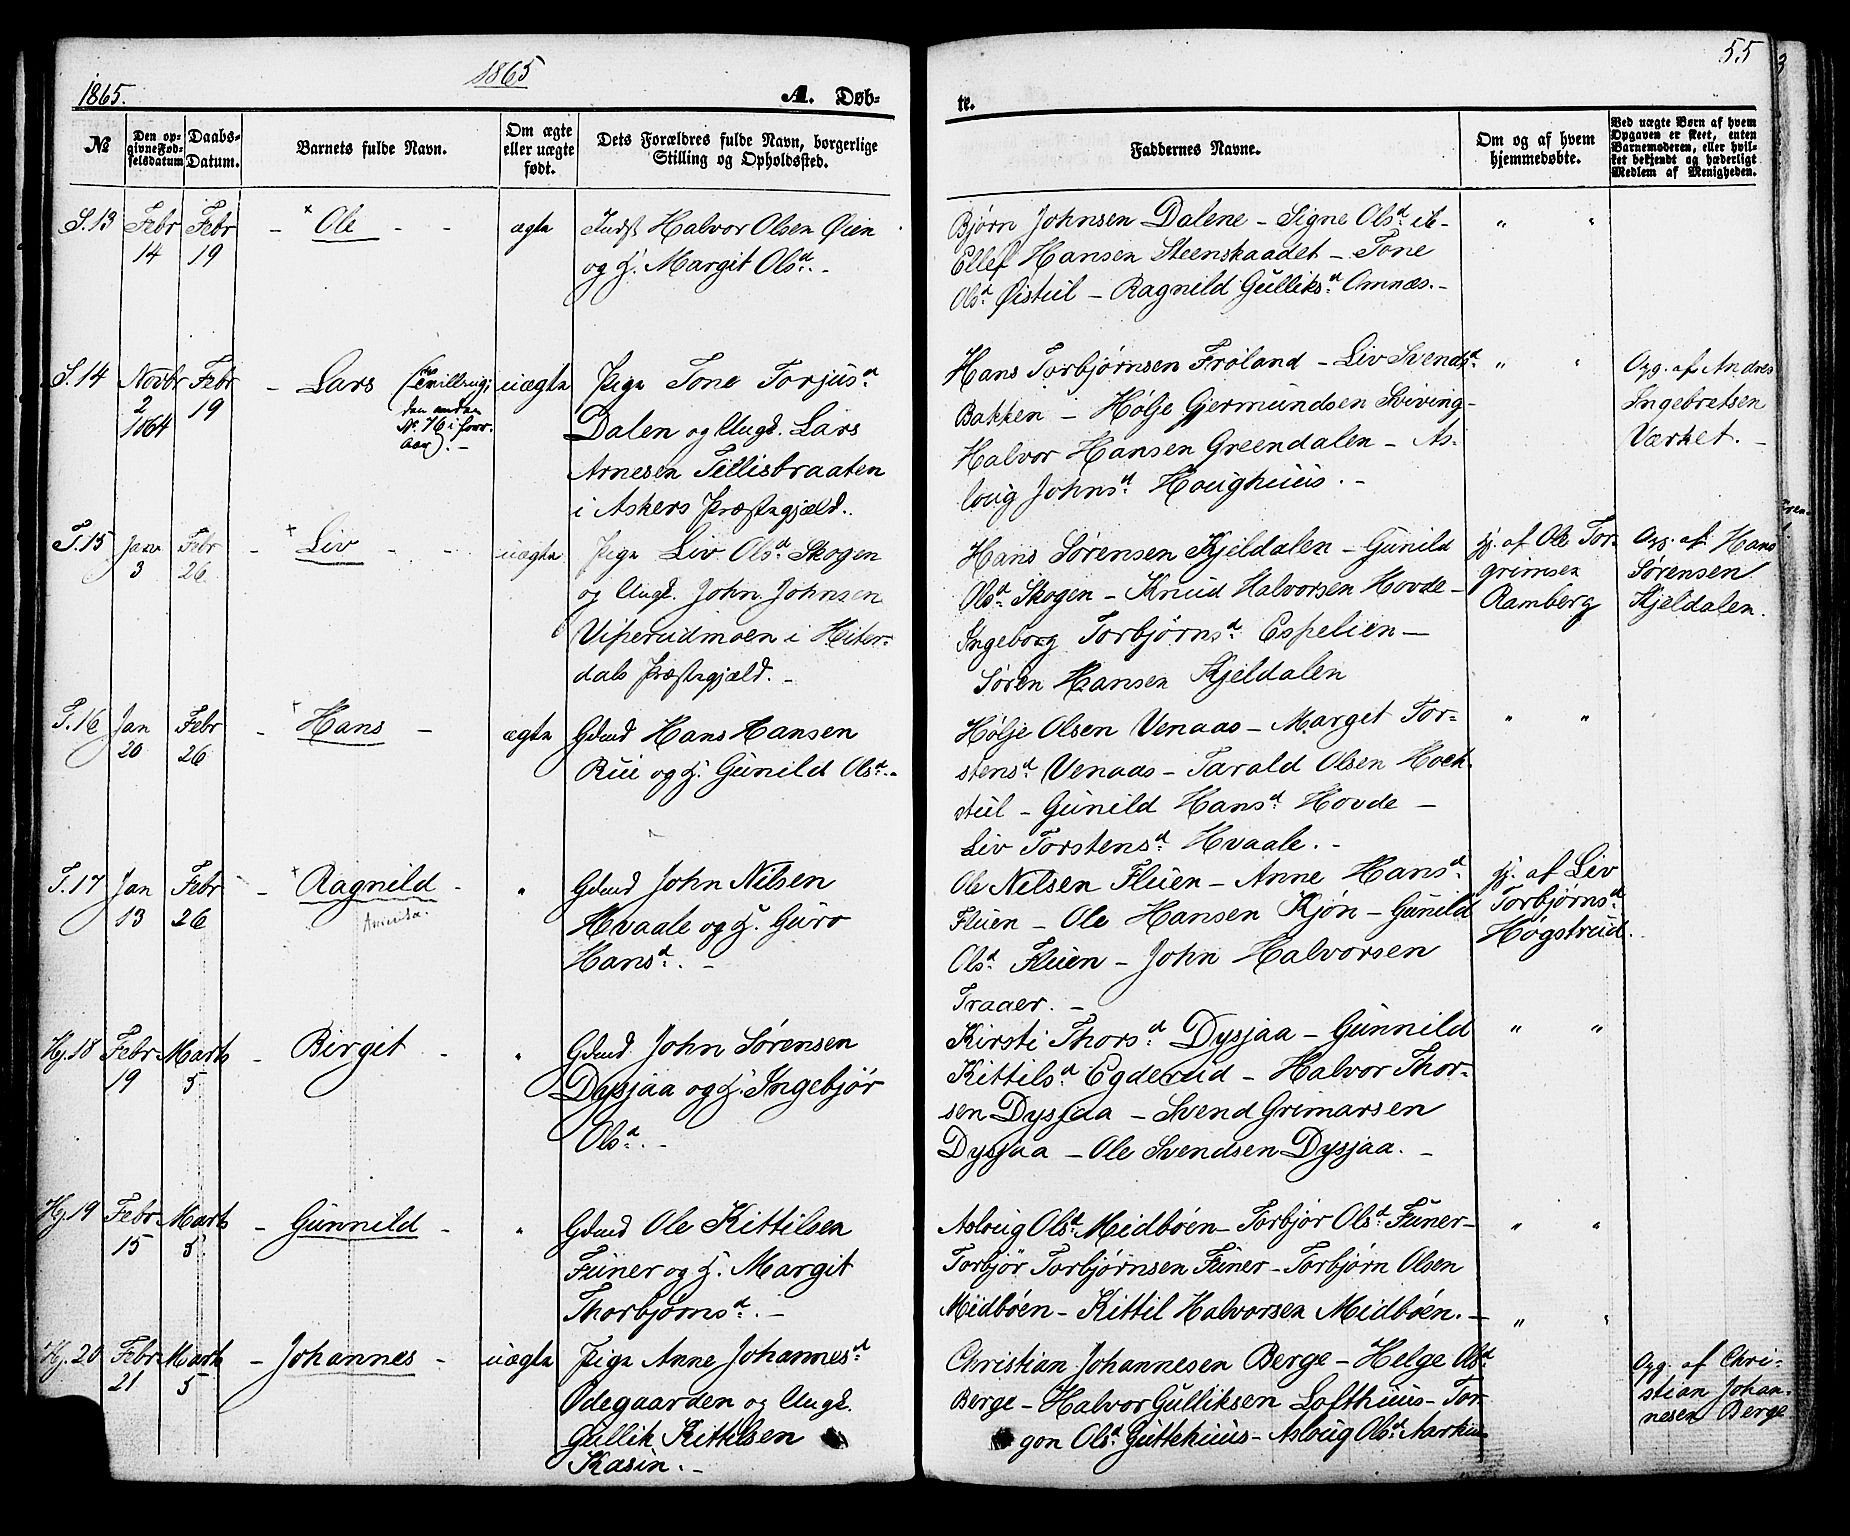 1865
55
1865.
A. Døb-
te.
№
Den op-
givne Fød-
selsdatum
Daabs-
Datum.
Barnets fulde Navn.
Om ægte
eller uægte
født.
Dets Forældres fulde Navn, borgerlige
Stilling og Opholdssted.
Faddernes Navne.
Om og af hvem
hjemmedøbte.
Ved uægte Børn af hvem
Opgaven er skeet, enten
Barnemoderen, eller hvil-
ket bekjendt og hæderligt
Medlem af Menigheden.
S. 13
Febr
14
Febr
19
- Ole - -
ægte
Indst Halvor Olsen Øien
og H. Margit Olsd. -
Bjørn Johnsen Dalene - Signe Olsd. ib -
Ellef Hansen Steenskaadet - Tone
Olsd. Østtil - Ragnild Gulliksd. Omnæs. -
" "
S. 14
Novbr
2
1864
Febr
19
- Lars
(Tvilling;
den anden
Nr. 76 i forr.
Aar). -
uægte
Pige Tone Torjusd.
Dalen og Ungk. Lars
Arnesen Tillisbraaten
i Askers Præstegjæld.
Hans Torbjørnsen Frøland - Liv Svendsd.
Bakken - Hølje Gjermundsen Sviving -
Halvor Hansen Greendalen - As-
loug Johnsd. Houghuus. -
" "
Opg. af Andres
Ingebretsen
Værket. -
T. 15
Janr
3
Febr
26
- Liv - -
uægte
Pige Liv Olsd. Skogen
og Ungk. John Johnsen
Viperudmoen i Hiter-
dals Præstegjæld. -
Hans Sørensen Kjeldalen - Gunild
Olsd. Skogen - Knud Halvorsen Hovde -
Ingeborg Torbjørnsd. Espelien -
Søren Hansen Kjeldalen
Hj. af Ole Tor-
grimsen
Ramberg
Opg. af Hans
Sørensen
Kjeldalen.
T. 16
Jan
20
Febr
26
- Hans -
ægte
Gdmd Hans Hansen
Rui og H. Gunild Olsd. -
Hølje Olsen Venaas - Marget Tor-
stensd. Venaas - Tarald Olsen Hoek
stul - Gunild Hansd. Hovde -
Liv Torstensd. Hvaale. -
" "
T. 17
Jan
13
Febr
26
- Ragnild -
"
Gdmd John Nilsen
Hvaale og H. Guro
Hansd. -
Ole Nilsen Fluen - Anne Hansd.
Fluen - Ole Hansen Kjøn - Gunild
Olsd. Fluen - John Halvorsen
Traaer. -
Hj. af Liv
Torbjørnsd.
Høgstrud.
Hj. 18
Febr
19
Marts
5
- Birgit -
"
Gdmd John Sørensen
Dysjaa og H. Ingebjør
Olsd. -
Kirsti Thorsd. Dysjaa - Gunnild
Kittilsd. Egderud - Halvor Thor-
sen Dysjaa - Svend Grimarsen
Dysjaa - Ole Svendsen Dysjaa. -
" "
Hj. 19
Febr
15
Marts
5
- Gunnild -
"
Gdmd Ole Kittilsen
Funer og H. Margit
Thorbjørnsd. -
Asloug Olsd. Midbøen - Torbjør Olsd. Funer -
Torbjør Torbjørnsen Funer - Torbjørn Olsen
Midbøen - Kittil Halvorsen Midbøen. -
" "
Hj. 20
Febr
21
Marts
5
- Johannes -
uægte
Pige Anne Johannesd.
Ødegaarden og Ungk.
Gullik Kittilsen
Kasin. -
Christian Johannesen Berge - Helge Olsd.
Berge - Halvor Gulliksen Lofthuus - Tor
gon Olsd. Juttehuus - Asloug Olsd.
" "
Opg. af Chri-
stian Johan-
nesen Berge